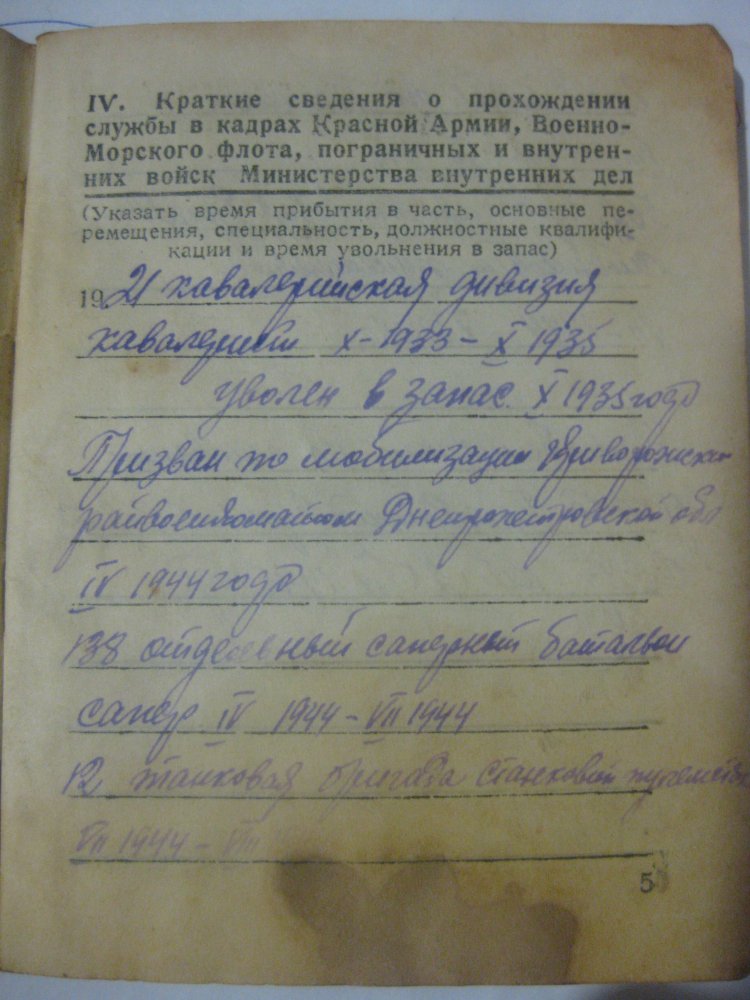 IV. Краткие сведения о прохождении
службы в кадрах Красной Армии, Военно-
Морского флота, пограничных и внутрен-
них войск Министерства внутренних дел
(Указать время прибытия в часть, основные пе-
ремещения, специальность, должностные квалифи-
кации и время увольнения в запас)
19 21 кавалерийская дивизия
X-1933-X 1935
уволен в запас X 1935 года
Призван по мобилизации Криворожским
райвоенкоматом Днепропетровской обл
IV 1944 года
138 отдельный саперный батальон
сапер IV 1944-VII 1944
12 танковая бригада станковый
VII 1944-VIII
5